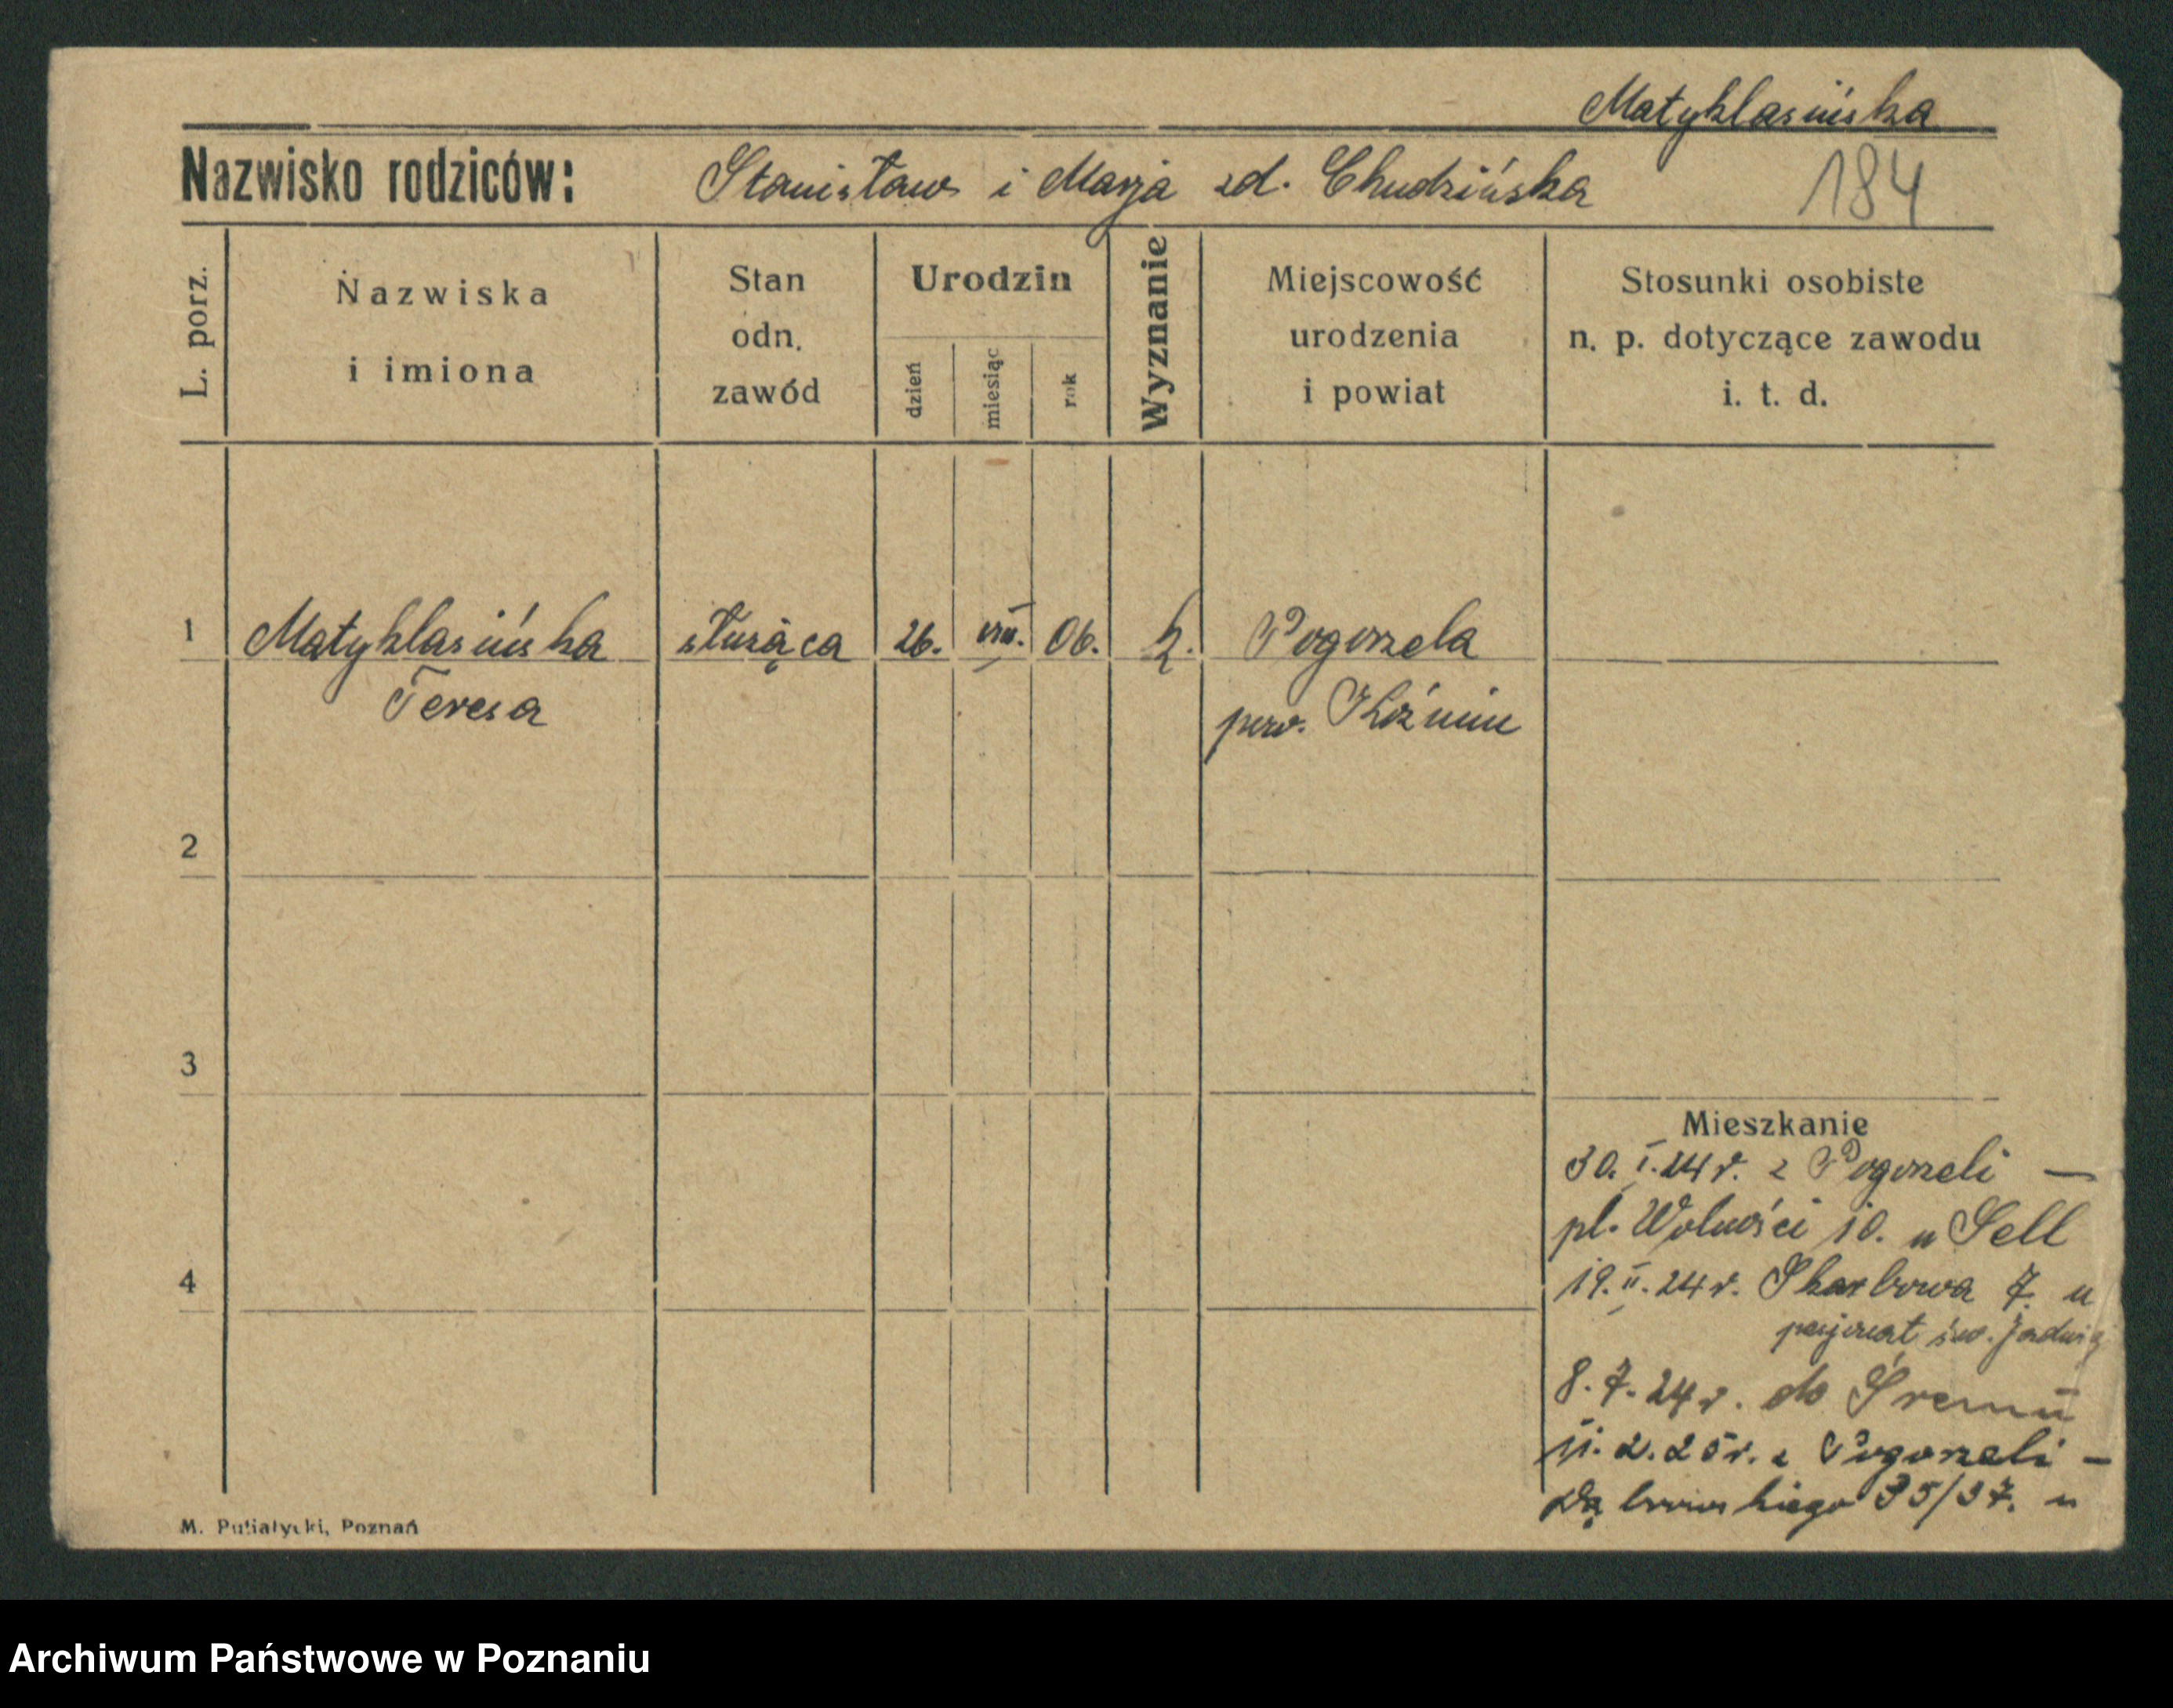 Matyklasińska
Nazwisko rodziców: Stanisław i Marja zd. Chudzińska 184
L. porz.
Nazwiska
i imiona
Stan
odn.
zawód
Urodzin
dzień
miesiąc
rok
Wyznanie
Miejscowość
urodzenia
i powiat
Stosunki osobiste
n. p. dotyczące zawodu
i. t. d.
1 Matyklasińska służąca 26. VIII. 06. k. Pogorzela
Teresa pow. Koźmin
2
3
4
Mieszkanie
30. I. 24 r. z Pogorzeli —
pl. Wolności 10. u Sell
19. II. 24 r. Skarbowa 7. u
pensjonat św. Jadwigi
8. 7. 24 r. do Śremu
11. 2. 25 r. z Pogorzeli —
Dąbrowskiego 35/37. u
M. Putiatycki, Poznań
Archiwum Państwowe w Poznaniu